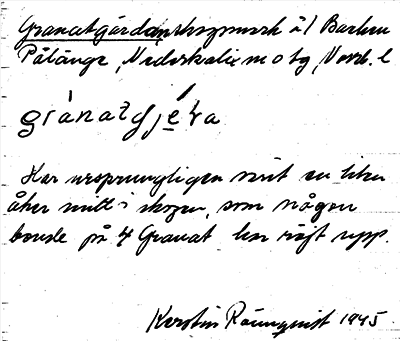 Granatgärdan, skogsmark å/ Barken
Pålänge, Nederkalix m o tg, Norrb. l
gránatjéɽa
Har ursprungligen varit en liten
åker mitt i skogen, som någon
bonde på 4 Granat har röjt upp.
Kerstin Rönnqvist 1945